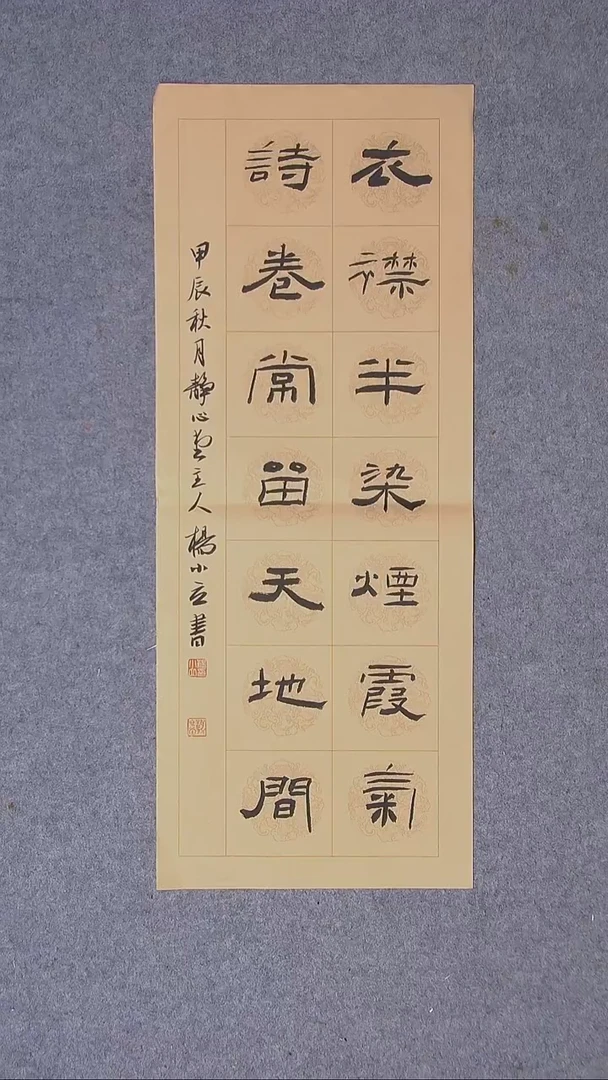 衣襟半染煙霞氣
詩卷常留天地間
甲辰秋月靜心堂主人楊小立書